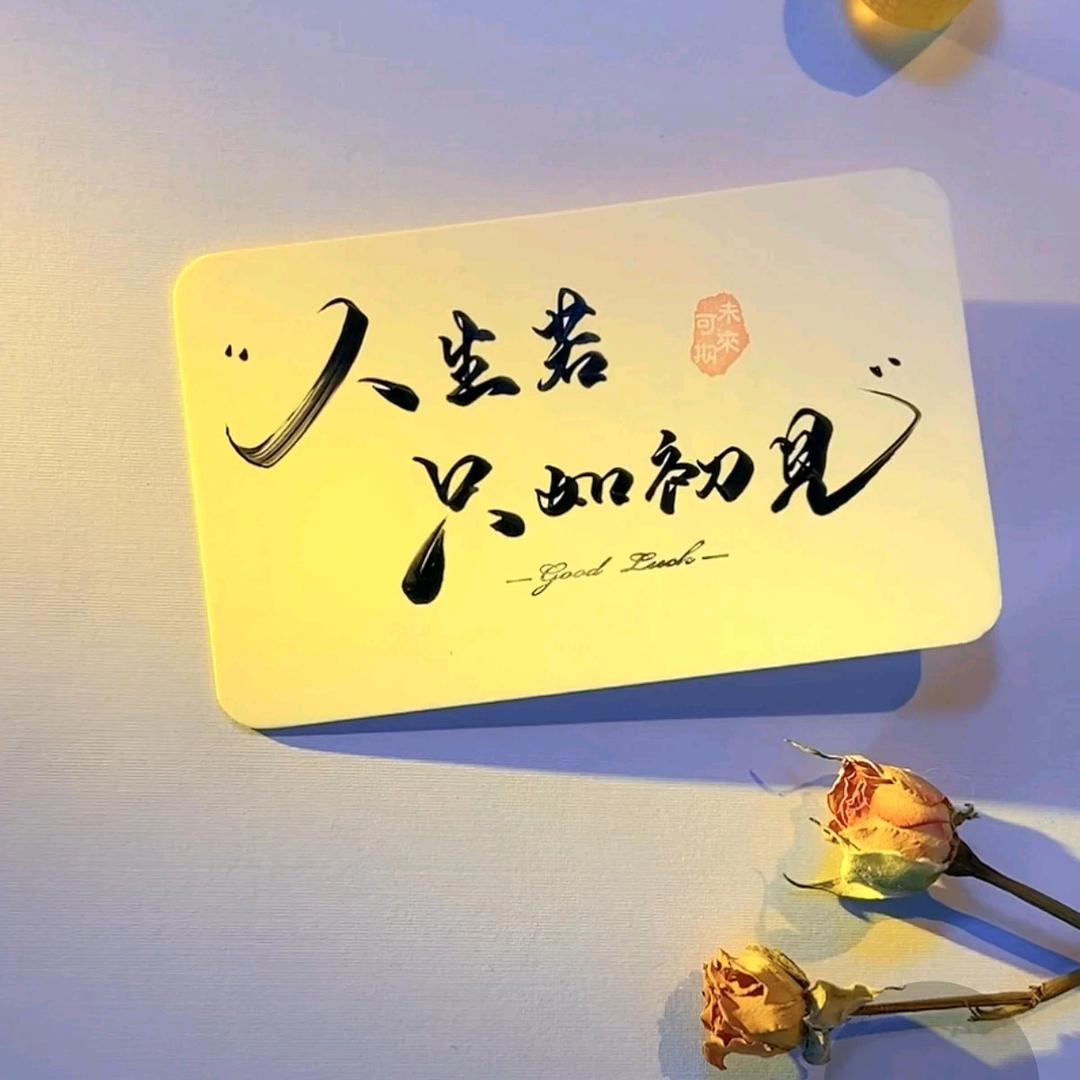 “人生若
未來
可期
只如初見”
—Good Luck—